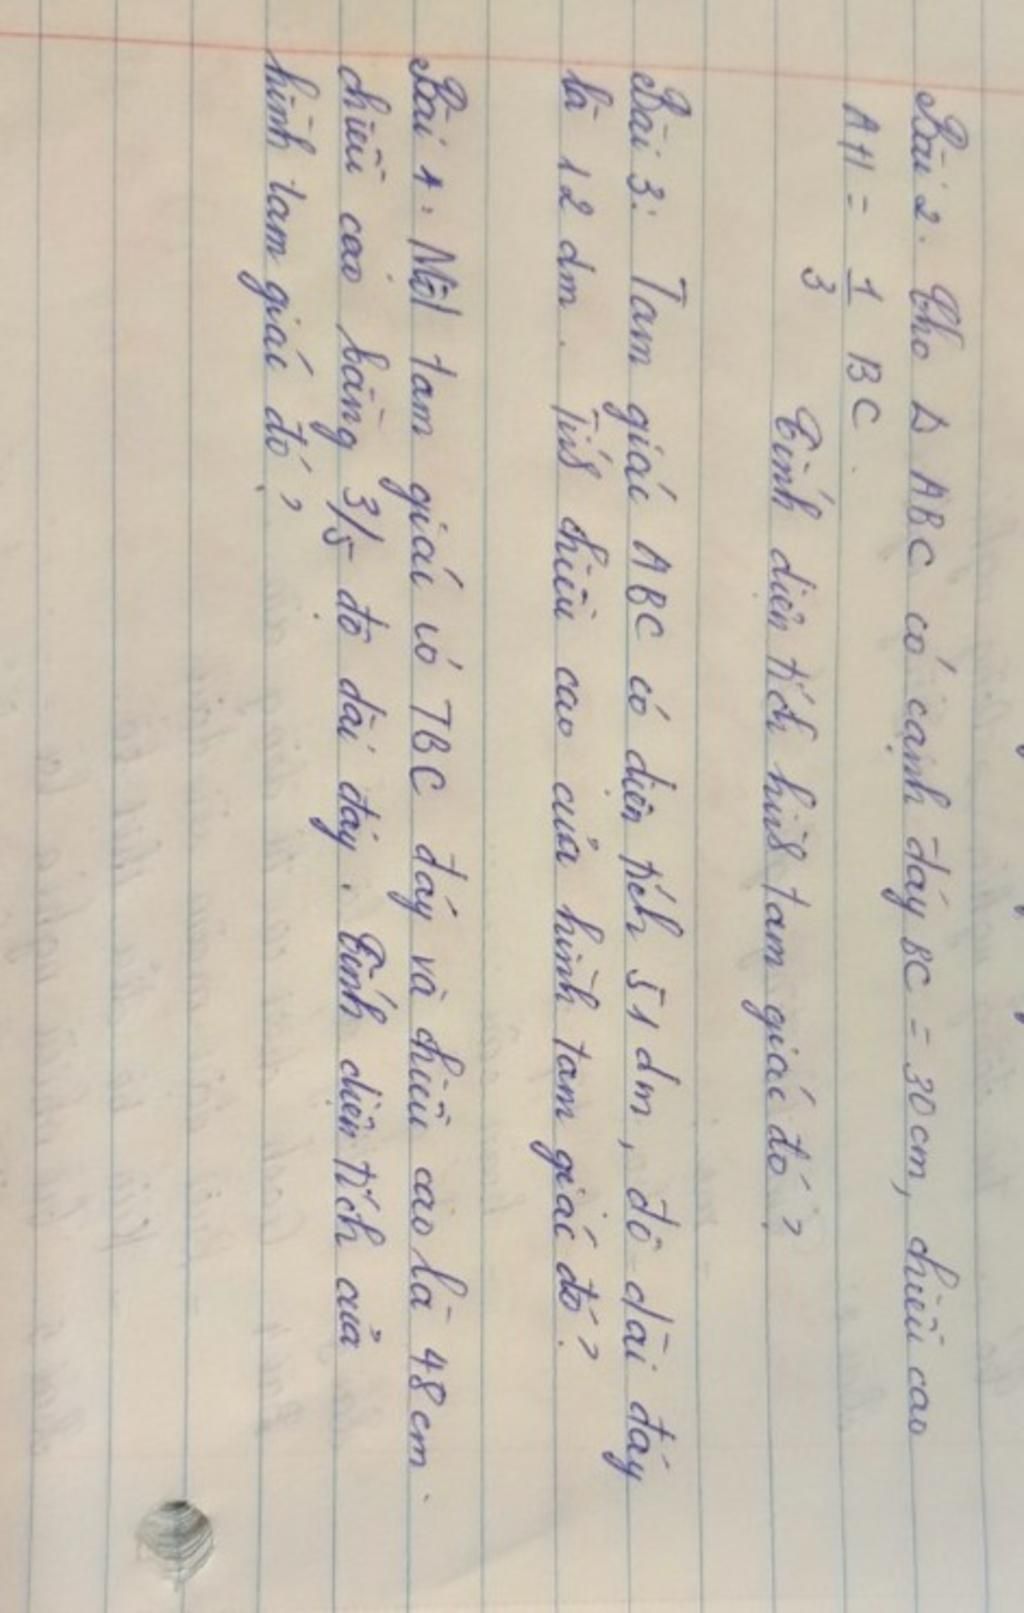 Bài 2. Cho Δ ABC có cạnh đáy BC = 30cm, chiều cao
AH = 1/3 BC.
Tính diện tích hình tam giác đó?
Bài 3: Tam giác ABC có diện tích 51dm, độ dài đáy
là 12 dm. Tính chiều cao của hình tam giác đó?
Bài 4: Một tam giác có TBC đáy và chiều cao là 48cm.
chiều cao bằng 3/5 độ dài đáy. Tính diện tích của
hình tam giác đó?